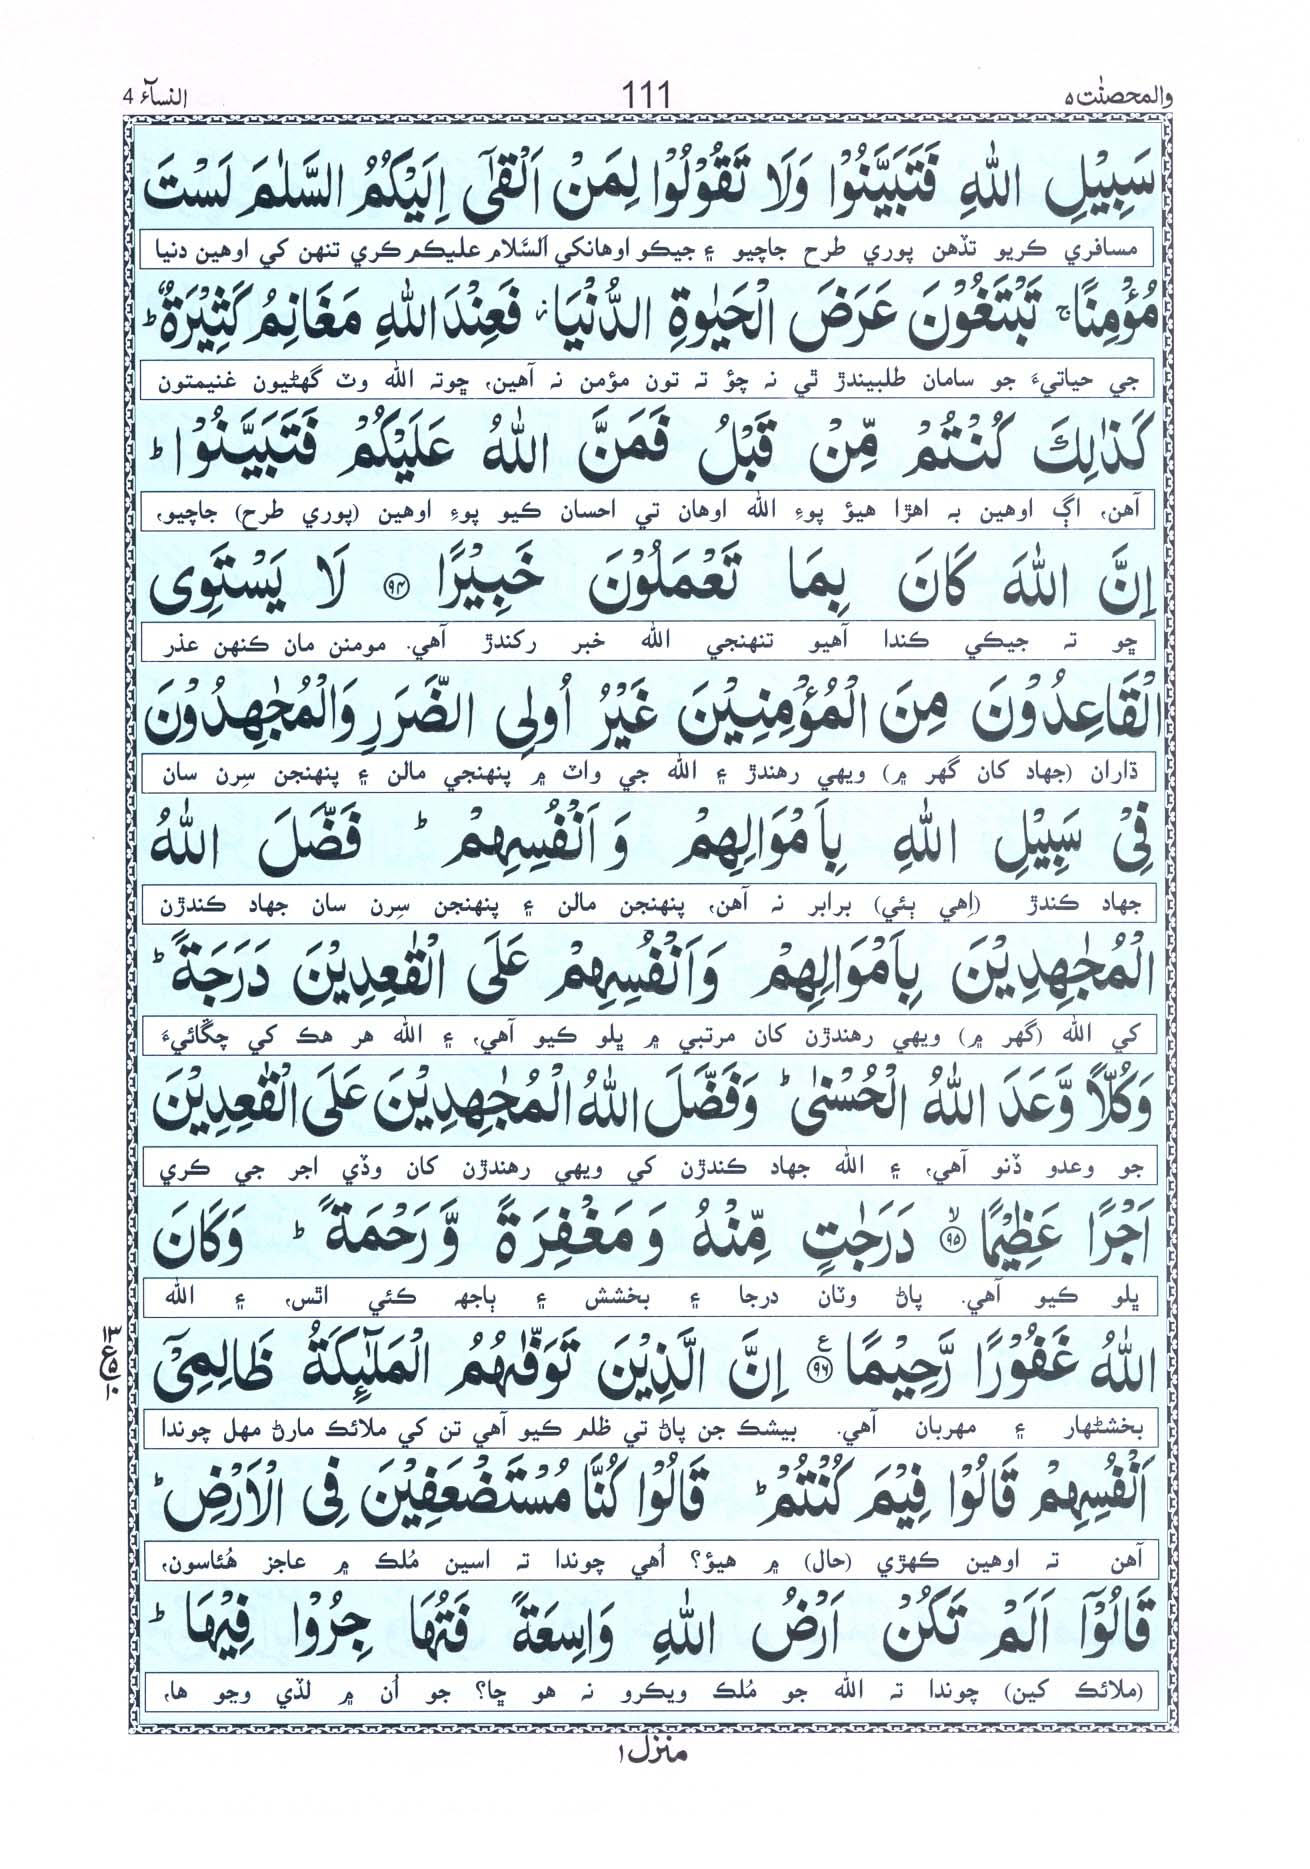 والمحصنٰت ۵
111
النسآء 4
سَبِيْلِ اللّٰهِ فَتَبَيَّنُوْا وَلَا تَقُوْلُوْا لِمَنْ اَلْقٰٓى اِلَيْكُمُ السَّلٰمَ لَسْتَ
مسافري ڪريو تڏهن پوري طرح جاچيو ۽ جيڪو اوهانکي اَلسَّلام عليڪم ڪري تنهن کي اوهين دنيا
مُؤْمِنًا ۚ تَبْتَغُوْنَ عَرَضَ الْحَيٰوةِ الدُّنْيَا ؗ فَعِنْدَ اللّٰهِ مَغَانِمُ كَثِيْرَةٌ ؕ
جي حياتيءَ جو سامان طلبيندڙ ٿي نه چؤ ته تون مؤمن نه آهين، ڇوته الله وٽ گهڻيون غنيمتون
كَذٰلِكَ كُنْتُمْ مِّنْ قَبْلُ فَمَنَّ اللّٰهُ عَلَيْكُمْ فَتَبَيَّنُوْا ؕ
آهن، اڳ اوهين به اهڙا هيؤ پوءِ الله اوهان تي احسان ڪيو پوءِ اوهين (پوري طرح) جاچيو،
اِنَّ اللّٰهَ كَانَ بِمَا تَعْمَلُوْنَ خَبِيْرًا ۝۹۴ لَا يَسْتَوِى
ڇو ته جيڪي ڪندا آهيو تنهنجي الله خبر رکندڙ آهي. مومنن مان ڪنهن عذر
الْقَاعِدُوْنَ مِنَ الْمُؤْمِنِيْنَ غَيْرُ اُولِى الضَّرَرِ وَالْمُجٰهِدُوْنَ
ڌاران (جهاد کان گهر ۾) ويهي رهندڙ ۽ الله جي واٽ ۾ پنهنجي مالن ۽ پنهنجن سِرن سان
فِىْ سَبِيْلِ اللّٰهِ بِاَمْوَالِهِمْ وَاَنْفُسِهِمْ ؕ فَضَّلَ اللّٰهُ
جهاد ڪندڙ (اِهي ٻئي) برابر نه آهن، پنهنجن مالن ۽ پنهنجن سِرن سان جهاد ڪندڙن
الْمُجٰهِدِيْنَ بِاَمْوَالِهِمْ وَاَنْفُسِهِمْ عَلَى الْقٰعِدِيْنَ دَرَجَةً ؕ
کي الله (گهر ۾) ويهي رهندڙن کان مرتبي ۾ ڀلو ڪيو آهي، ۽ الله هر هڪ کي چڱائيءَ
وَكُلًّا وَّعَدَ اللّٰهُ الْحُسْنٰى ؕ وَفَضَّلَ اللّٰهُ الْمُجٰهِدِيْنَ عَلَى الْقٰعِدِيْنَ
جو وعدو ڏنو آهي، ۽ الله جهاد ڪندڙن کي ويهي رهندڙن کان وڏي اجر جي ڪري
اَجْرًا عَظِيْمًا ۙ۝۹۵ دَرَجٰتٍ مِّنْهُ وَمَغْفِرَةً وَّرَحْمَةً ؕ وَكَانَ
ڀلو ڪيو آهي. پاڻ وٽان درجا ۽ بخشش ۽ ٻاجهه ڪئي اٿس، ۽ الله
اللّٰهُ غَفُوْرًا رَّحِيْمًا ۝۹۶ ع اِنَّ الَّذِيْنَ تَوَفّٰىهُمُ الْمَلٰٓئِكَةُ ظَالِمِىْٓ
۱۳ ع ۵ ۱۰
بخشڻهار ۽ مهربان آهي. بيشڪ جن پاڻ تي ظلم ڪيو آهي تن کي ملائڪ مارڻ مهل چوندا
اَنْفُسِهِمْ قَالُوْا فِيْمَ كُنْتُمْ ؕ قَالُوْا كُنَّا مُسْتَضْعَفِيْنَ فِى الْاَرْضِ ؕ
آهن ته اوهين ڪهڙي (حال) ۾ هيؤ؟ اُهي چوندا ته اسين مُلڪ ۾ عاجز هُئاسون،
قَالُوْٓا اَلَمْ تَكُنْ اَرْضُ اللّٰهِ وَاسِعَةً فَتُهَا جِرُوْا فِيْهَا ؕ
(ملائڪ کين) چوندا ته الله جو مُلڪ ويڪرو نه هو ڇا؟ جو اُن ۾ لڏي وڃو ها،
منزل ۱